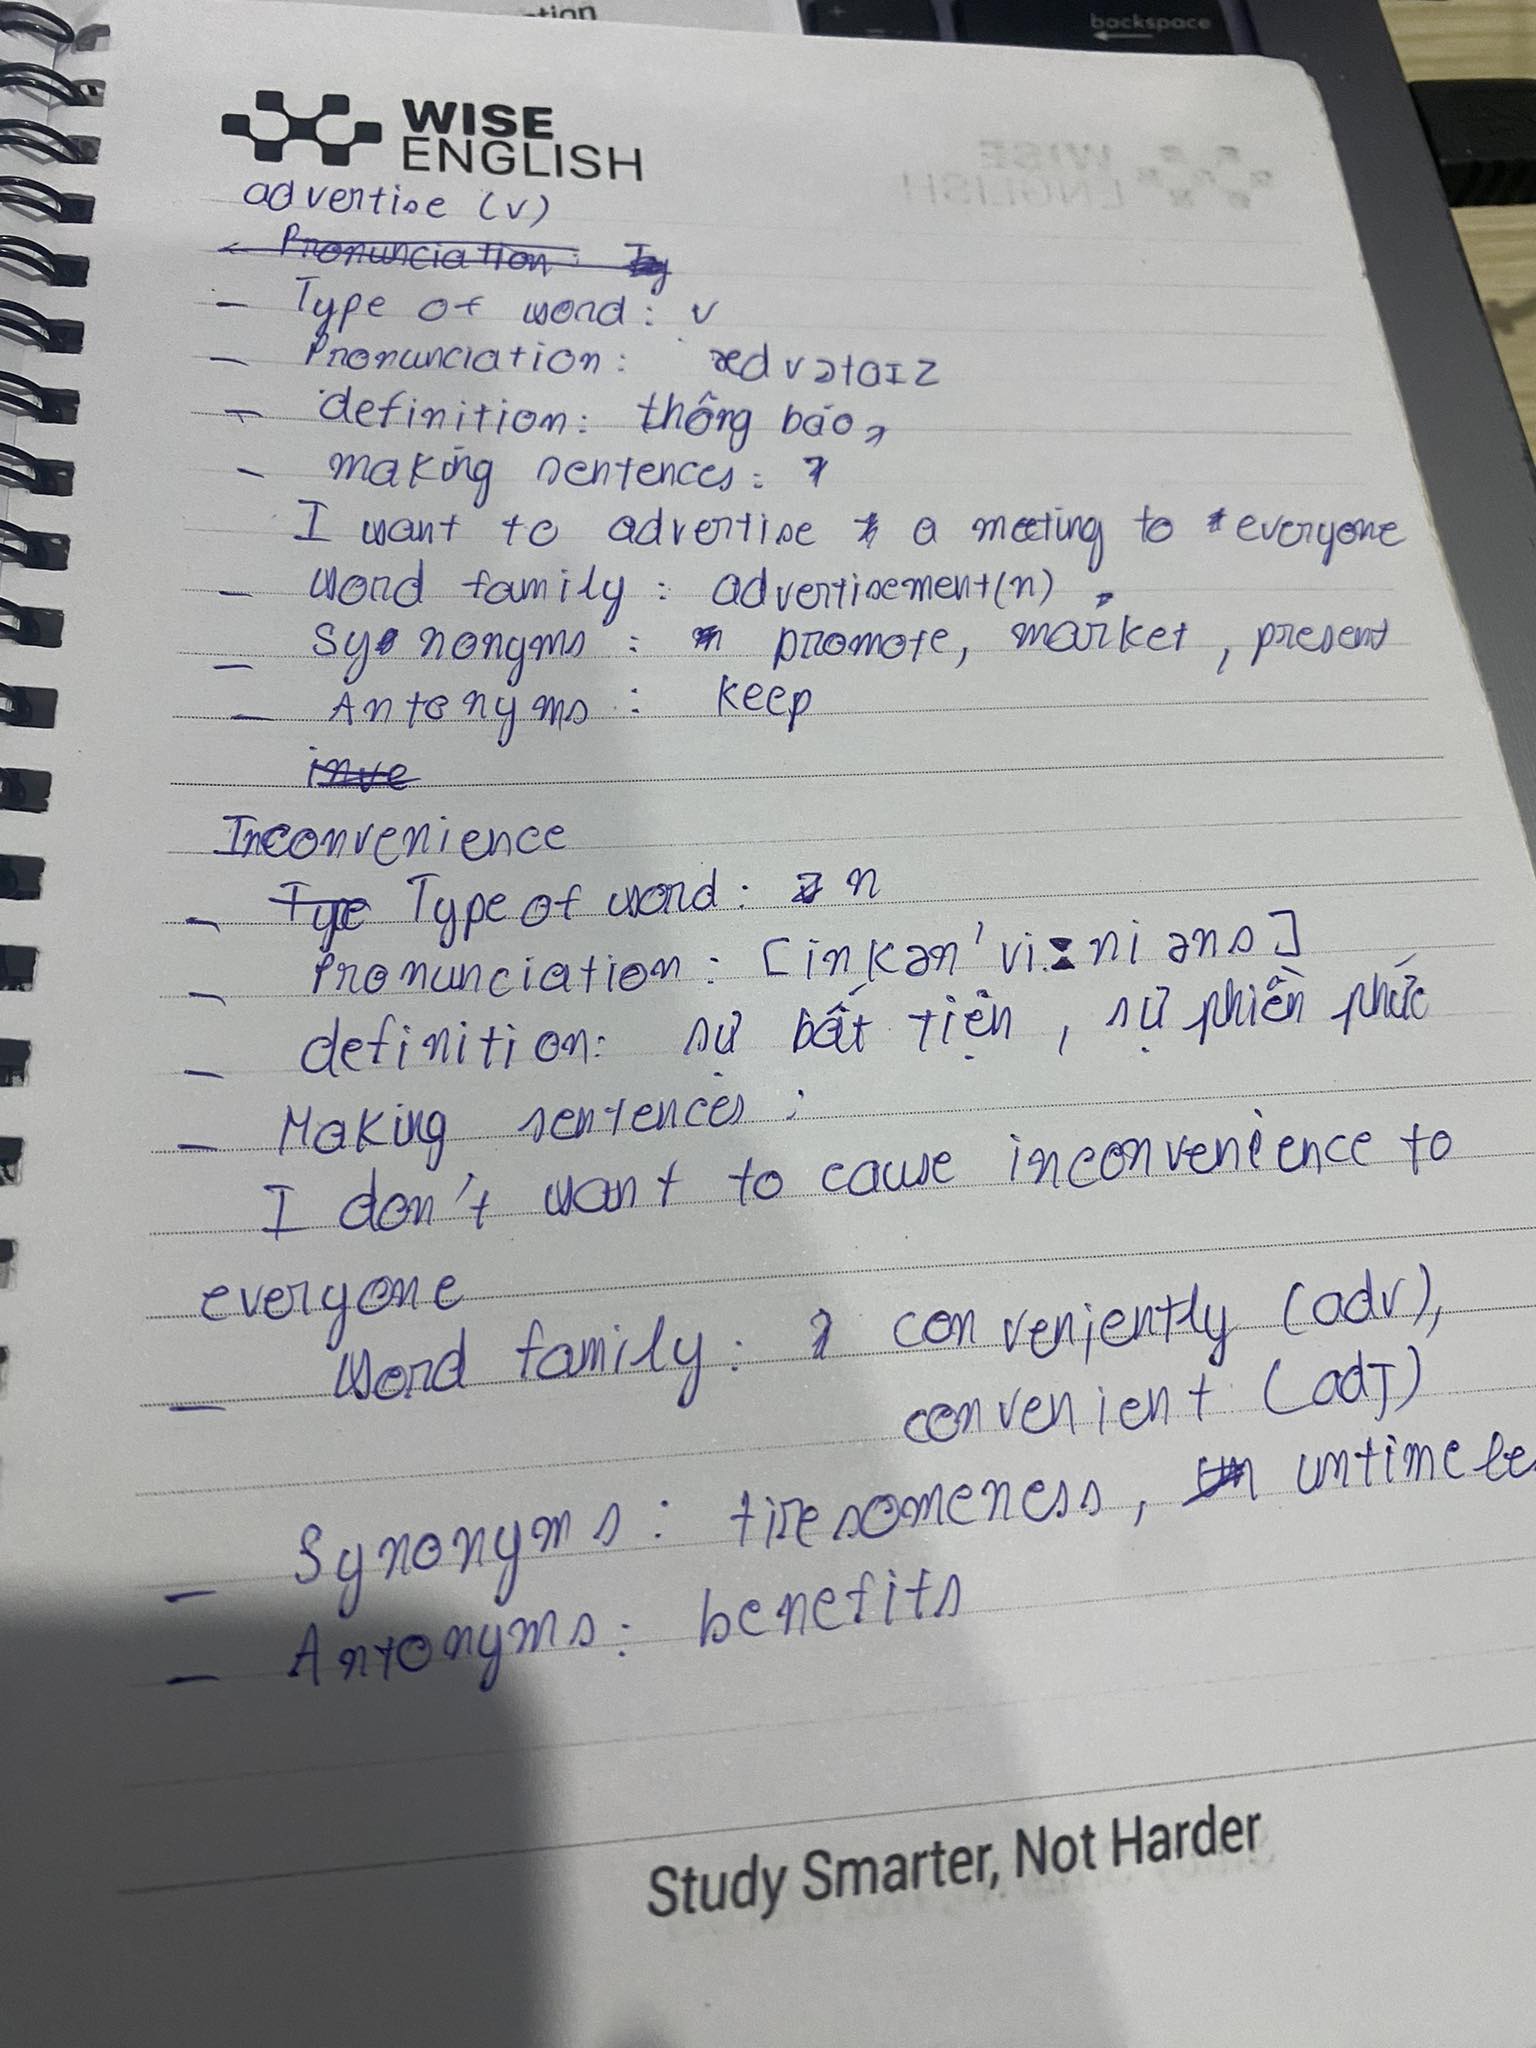 backspace
WISE
ENGLISH
advertise (v)
- Pronunciation:
- Type of word: v
- Pronunciation: 'ædvətaɪz
- definition: thông báo,
- making sentences:
I want to advertise a meeting to everyone
- Word family: advertisement(n)
- Synonyms: promote, market, present
- Antonyms: keep
inve
Inconvenience
- Type Type of word: n
- Pronunciation: [inkən'vi:niəns]
- definition: sự bất tiện, sự phiền phức
- Making sentences:
I don't want to cause inconvenience to
everyone
- Word family: conveniently (adv),
convenient (adj)
- Synonyms: tiresomeness, untimele
- Antonyms: benefits
Study Smarter, Not Harder